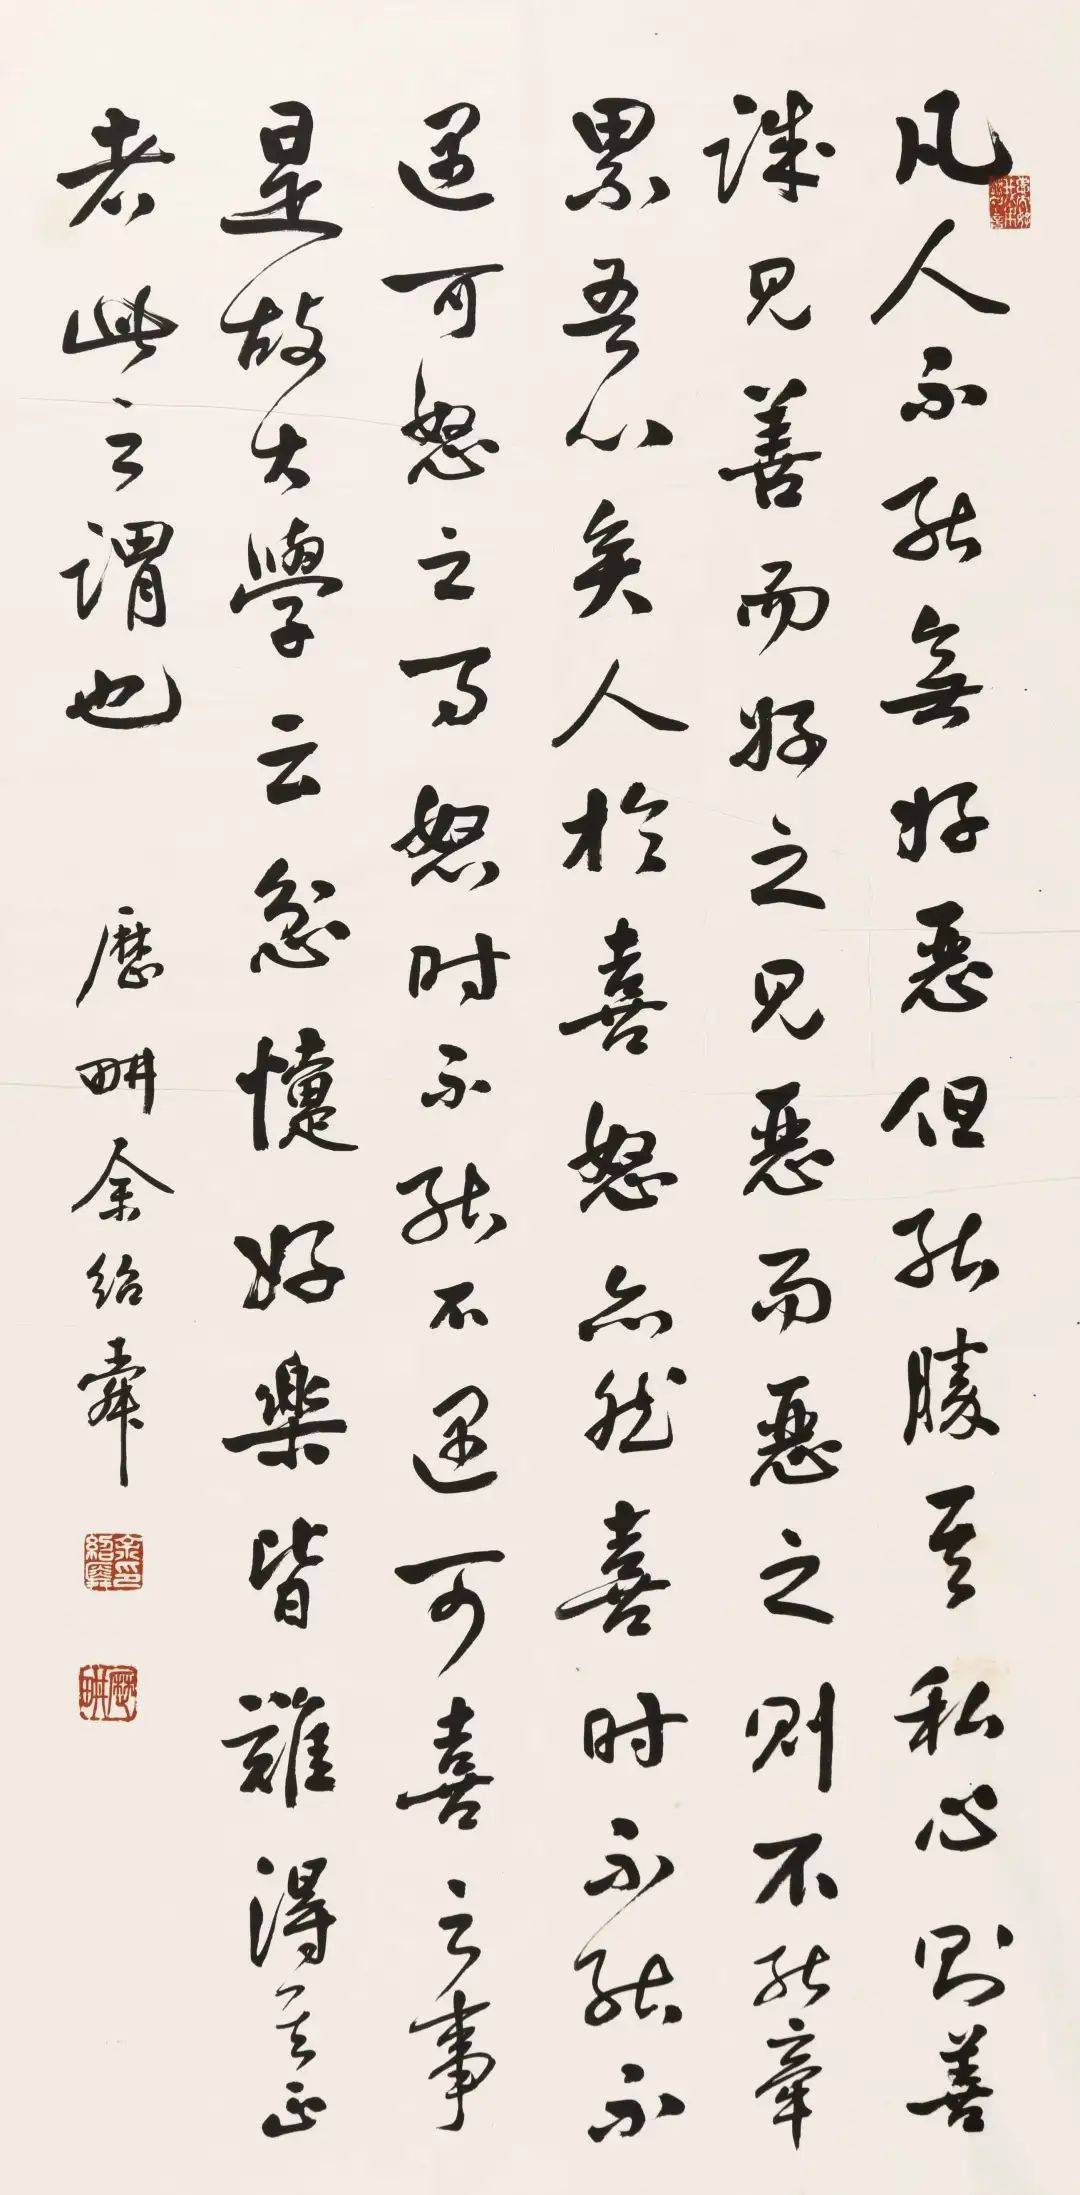 凡人不能無好惡但能勝其私心則善
誠見善而好之見惡而惡之則不能牽
累吾心矣人於喜怒亦然喜时不能不
遇可怒之事怒时不能不遇可喜之事
是故大學云忿懥好樂皆難得其正
者此之謂也
歷畊余紹舜
余印紹舜
歷畊